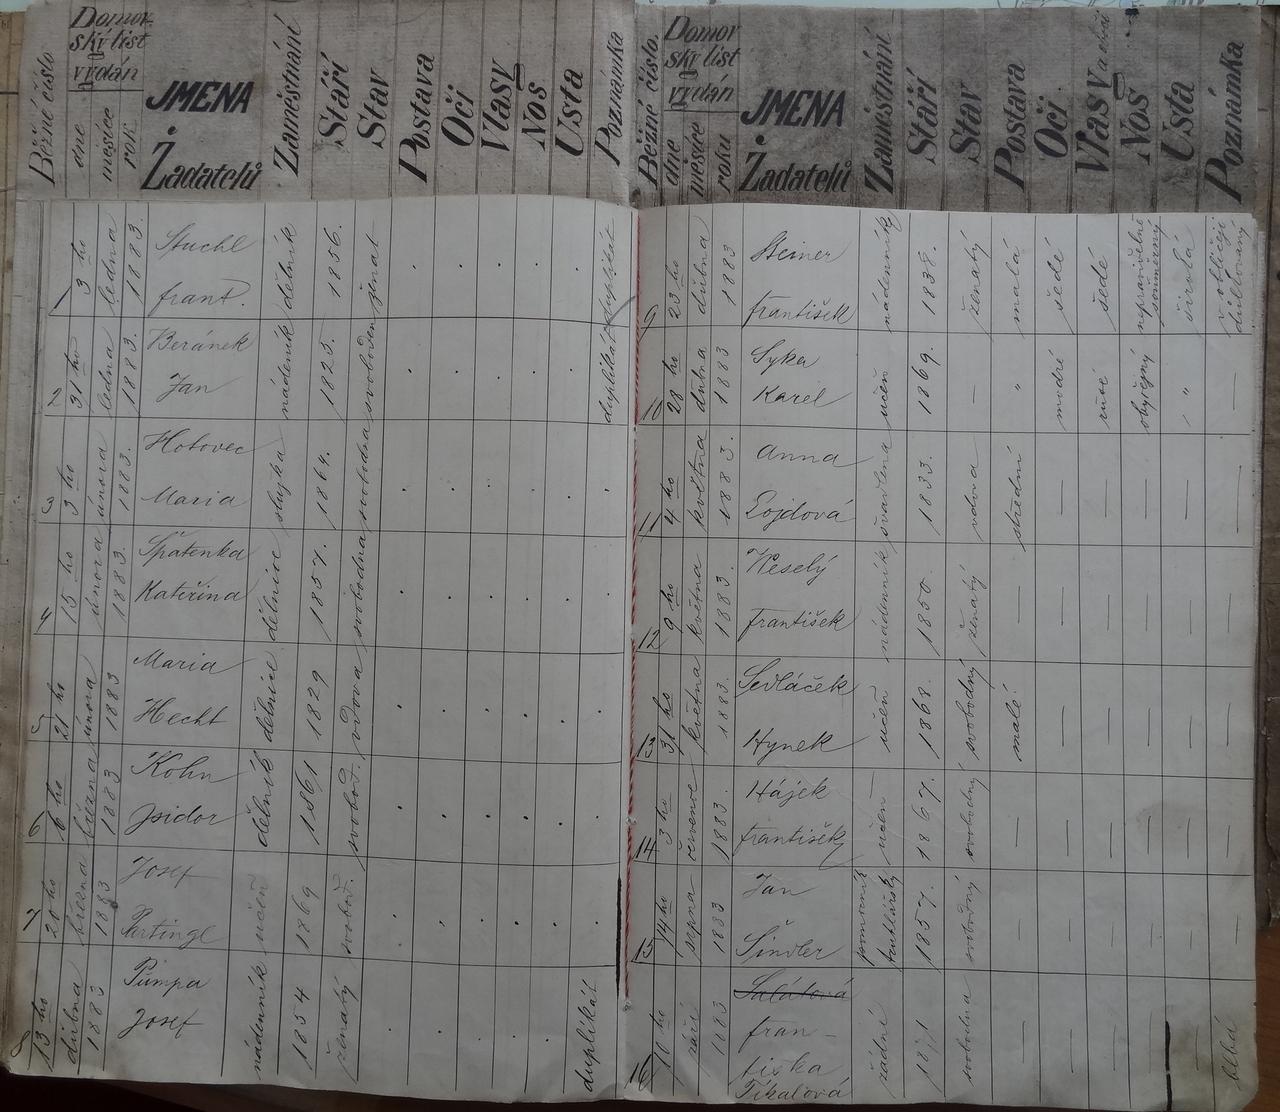 Běžné číslo
Domov-
ský list
vydán
dne
měsíce
rok
JMENA
Žadatelů
Zaměstnání
Stáří
Stav
Postava
Oči
Vlasy
Nos
Ústa
Poznámka
1
3 ho
ledna
1883.
Stuchl
frant.
dělník
1856.
ženat
duplikát
2
31 ho
ledna
1883.
Beránek
Jan
nádeník
1825.
svoboden
duplikát
3
3 ho
února
1883.
Hotovec
Maria
služka
1864.
svobodna
4
15 ho
února
1883.
Špatenka
Kateřina
dělnice
1857.
svobodna
5
21 ho
února
1883
Maria
Hecht
dělnice
1829
vdova
6
6 ho
března
1883
Kohn
Isidor
dělník
1861
svobod.
7
20 ho
března
1883
Josef
Partingl
učeň
1869
svobod.
8
13 ho
dubna
1883
Půmpa
Josef
nádenník
1854
ženatý
duplikát
Běžné číslo.
Domov
ský list
vydán
dne
měsíce
roku
JMENA
Žadatelů
Zaměstnání
Stáří
Stav
Postava
Oči
Vlasy
Nos
Ústa
Poznámka
9
23 ho
dubna
1883
Steiner
František
nádenník
1838.
ženatý
malá
šedé
šedé
nepravidelně
souměrný
široká
v obličeji
10
28 ho
dubna
1883
Syka
Karel
učeň
1869.
—
"
modré
obyčejný
"
—
11
4 ho
května
1883.
Anna
Lojdová
švadlena
1833.
vdova
střední
—
—
—
—
—
12
9 ho
května
1883.
Weselý
František
nádenník
1850.
ženatý
—
—
—
—
—
—
13
31 ho
května
1883.
Sedláček
Hynek
učeň
1868.
svobodný
malé
—
—
—
—
—
14
3 ho
července
1883.
Hájek
František
učen
1867.
svobodný
—
—
—
—
—
—
15
14 ho
srpna
1883
Jan
Šindler
pomocník
truhlářský
1857.
svobodný
—
—
—
—
—
—
16
10 ho
září
1883
Salátová
fran-
tiska
Pikalová
žádné
1871
svobodna
—
—
—
—
—
blbá